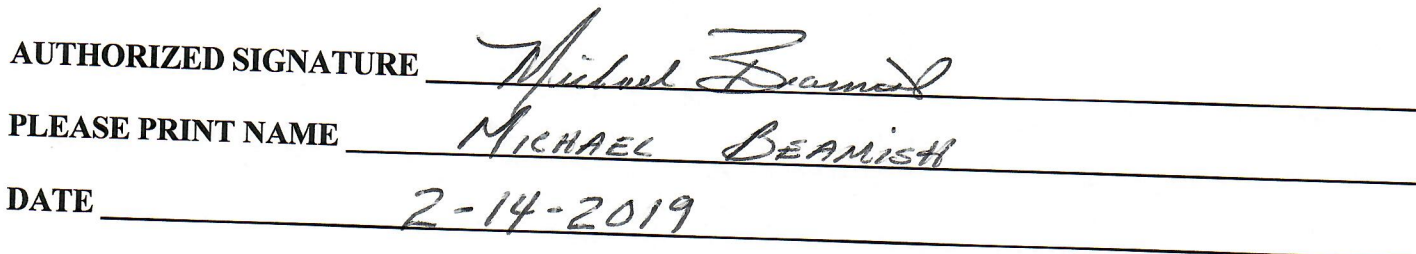 AUTHORIZED SIGNATURE Michael Beamish
PLEASE PRINT NAME MICHAEL BEAMISH
DATE 2-14-2019